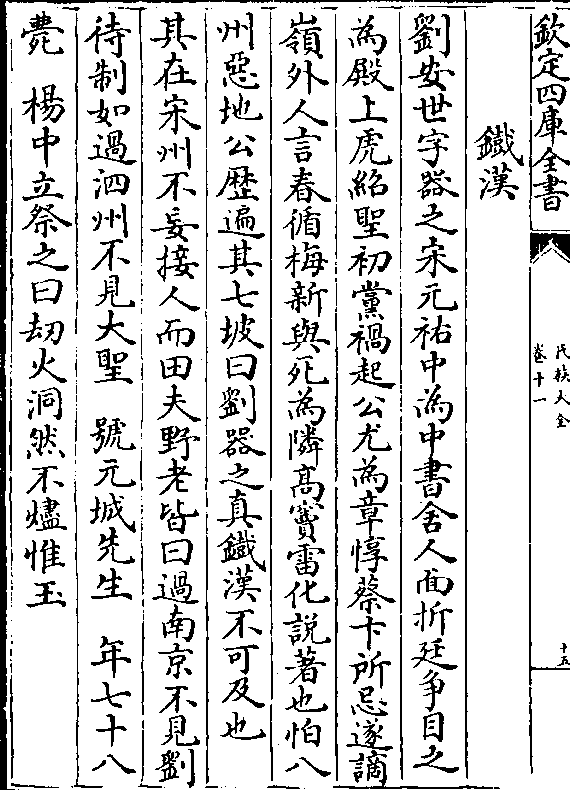 欽定四庫全書
氏族大全
卷十一
十五
鐵漢
劉安世字器之宋元祐中為中書舍人面折廷爭目之
為殿上虎紹聖初黨禍起公尤為章惇蔡卞所忌遂謫
嶺外人言春循梅新與死為隣髙竇雷化說著也怕八
州惡地公歴遍其七坡曰劉器之真鐵漢不可及也
其在宋州不妄接人而田夫野老皆曰過南京不見劉
待制如過泗州不見大聖 號元城先生 年七十八
薨 楊中立祭之曰刧火洞然不燼惟玉